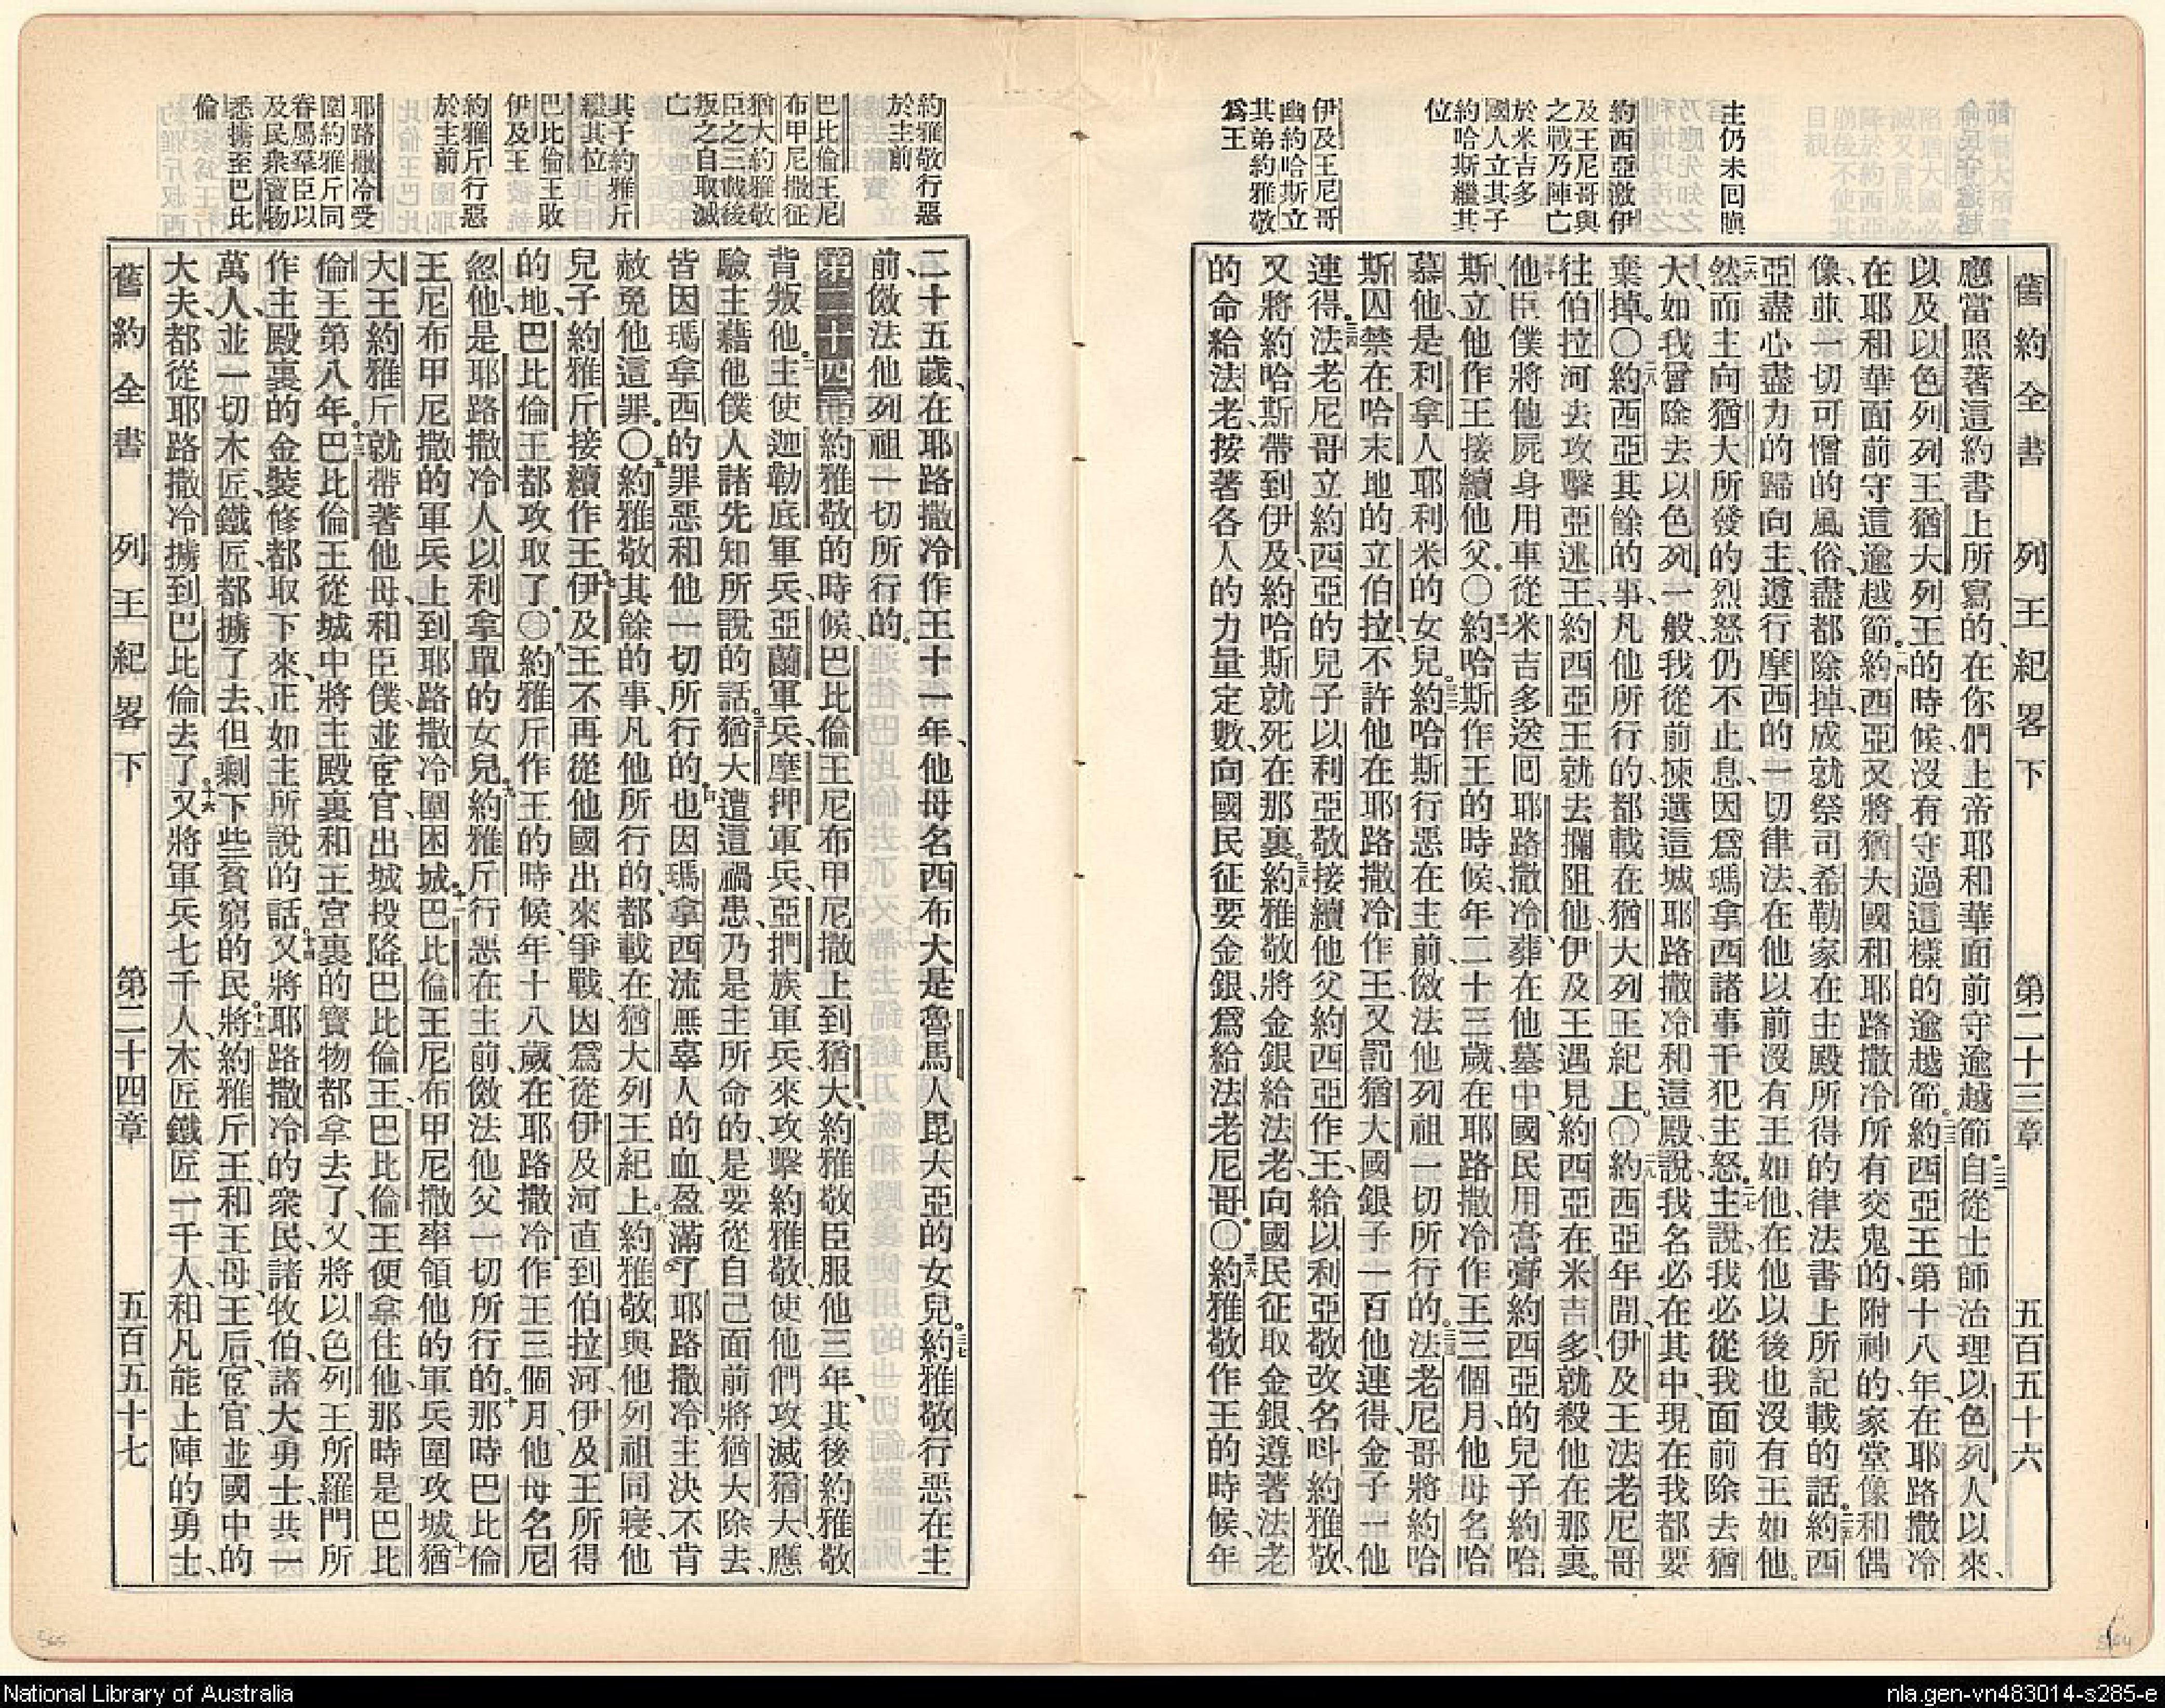 舊約全書 列王紀畧下 第二十三章 五百五十六
主仍未回嗔
約西亞激伊
及王尼哥與
之戰乃陣亡
於米吉多
國人立其子
約哈斯繼其
位
伊及王尼哥
幽約哈斯立
其弟約雅敬
爲王
應當照著這約書上所寫的、在你們上帝耶和華面前守逾越節。二二自從士師治理以色列人以來、
以及以色列列王猶大列王的時候、沒有守過這樣的逾越節。二三約西亞王第十八年、在耶路撒冷
在耶和華面前守這逾越節。二四約西亞又將猶大國和耶路撒冷所有交鬼的、附神的、家堂像和偶
像、並一切可憎的風俗、盡都除掉、成就祭司希勒家在主殿所得的律法書上所記載的話。二五約西
亞盡心盡力的歸向主、遵行摩西的一切律法、在他以前沒有王如他、在他以後也沒有王如他。
二六然而主向猶大所發的烈怒仍不止息、因爲瑪拿西諸事干犯主怒。二七主說、我必從我面前除去猶
大、如我曾除去以色列一般、我從前揀選這城耶路撒冷和這殿、說、我名必在其中、現在我都要
棄掉。〇二八約西亞其餘的事、凡他所行的、都載在猶大列王紀上。〇二九約西亞年間、伊及王法老尼哥
往伯拉河去攻擊亞述王、約西亞王就去攔阻他、伊及王遇見約西亞在米吉多、就殺他在那裏。
三十他臣僕將他屍身用車從米吉多送回耶路撒冷、葬在他墓中、國民用膏膏約西亞的兒子約哈
斯、立他作王、接續他父。〇三一約哈斯作王的時候、年二十三歲、在耶路撒冷作王三個月、他母名哈
慕他、是利拿人耶利米的女兒。三二約哈斯行惡在主前、傚法他列祖一切所行的。三三法老尼哥將約哈
斯囚禁在哈末地的立伯拉、不許他在耶路撒冷作王、又罰猶大國銀子一百他連得、金子一他
連得。三四法老尼哥立約西亞的兒子以利亞敬接續他父約西亞作王、給以利亞敬改名呌約雅敬、
又將約哈斯帶到伊及、約哈斯就死在那裏。三五約雅敬將金銀給法老、向國民征取金銀、遵著法老
的命給法老、按著各人的力量定數、向國民征要金銀、爲給法老尼哥。〇三六約雅敬作王的時候、年
約雅敬行惡
於主前
巴比倫王尼
布甲尼撒征
猶大約雅敬
臣之三載後
叛之自取滅
亡
其子約雅斤
繼其位
巴比倫王敗
伊及王
約雅斤行惡
於主前
耶路撒冷受
圍約雅斤同
眷屬羣臣以
及民衆寶物
悉擄至巴比
倫
二十五歲、在耶路撒冷作王十一年、他母名西布大、是魯馬人毘大亞的女兒。三七約雅敬行惡在主
前、傚法他列祖一切所行的。
第二十四章 約雅敬的時候、巴比倫王尼布甲尼撒上到猶大、約雅敬臣服他三年、其後約雅敬
背叛他。二主使迦勒底軍兵、亞蘭軍兵、摩押軍兵、亞捫族軍兵、來攻擊約雅敬、使他們攻滅猶大、應
驗主藉他僕人諸先知所說的話。三猶大遭這禍患、乃是主所命的、是要從自己面前將猶大除去、
皆因瑪拿西的罪惡和他一切所行的、四也因瑪拿西流無辜人的血、盈滿了耶路撒冷、主決不肯
赦免他這罪。〇五約雅敬其餘的事、凡他所行的、都載在猶大列王紀上。六約雅敬與他列祖同寢、他
兒子約雅斤接續作王。七伊及王不再從他國出來爭戰、因爲從伊及河直到伯拉河、伊及王所得
的地、巴比倫王都攻取了。〇八約雅斤作王的時候、年十八歲、在耶路撒冷作王三個月、他母名尼
忽他、是耶路撒冷人以利拿單的女兒。九約雅斤行惡在主前、傚法他父一切所行的。十那時巴比倫
王尼布甲尼撒的軍兵上到耶路撒冷、圍困城。十一巴比倫王尼布甲尼撒率領他的軍兵圍攻城、十二猶
大王約雅斤就帶著他母和臣僕、並宦官、出城投降巴比倫王、巴比倫王便拿住他、那時是巴比
倫王第八年。十三巴比倫王從城中將主殿裏和王宮裏的寶物都拿去了、又將以色列王所羅門所
作主殿裏的金裝修都取下來、正如主所說的話。十四又將耶路撒冷的衆民、諸牧伯、諸大勇士、共一
萬人、並一切木匠、鐵匠、都擄了去、但剩下些貧窮的民。十五將約雅斤王和王母、王后、宦官、並國中的
大夫、都從耶路撒冷擄到巴比倫去了。十六又將軍兵七千人、木匠鐵匠一千人、和凡能上陣的勇士、
舊約全書 列王紀畧下 第二十四章 五百五十七
National Library of Australia
nla.gen-vn483014-s285-e